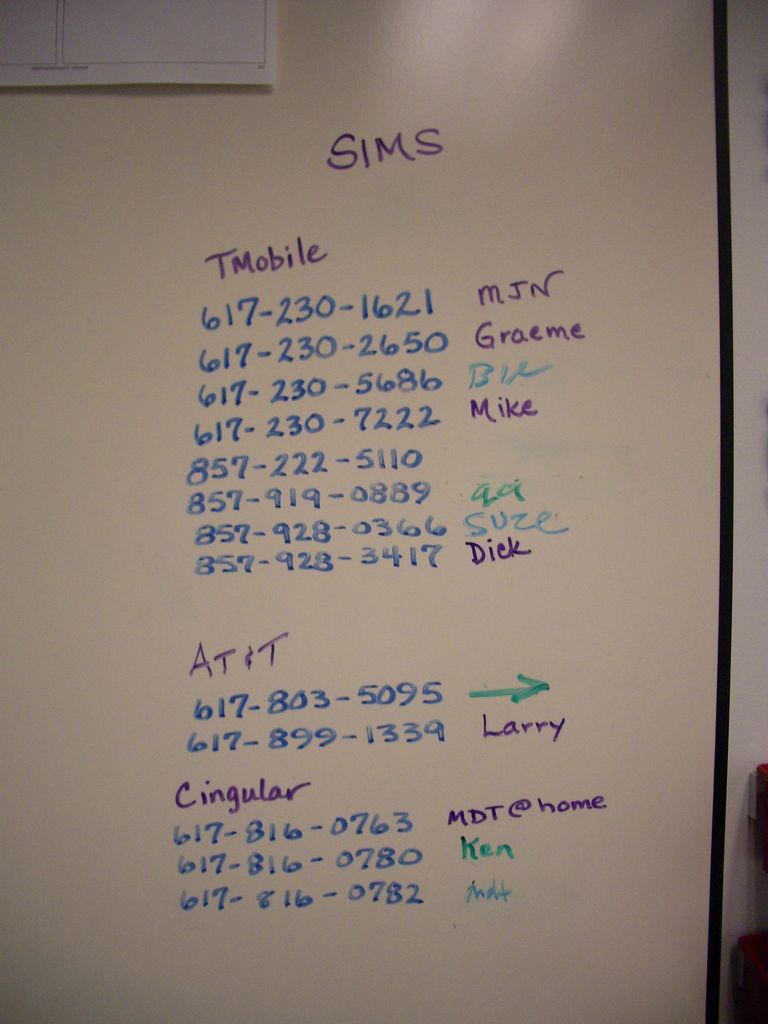 SIMS
TMobile
617-230-1621 MJN
617-230-2650 Graeme
617-230-5686
617-230-7222 Mike
857-222-5110
857-919-0889 qa
857-928-0366 Suze
857-928-3417 Dick
AT&T
617-803-5095 →
617-899-1339 Larry
Cingular
617-816-0763 MDT@home
617-816-0780 Ken
617-816-0782 mdt